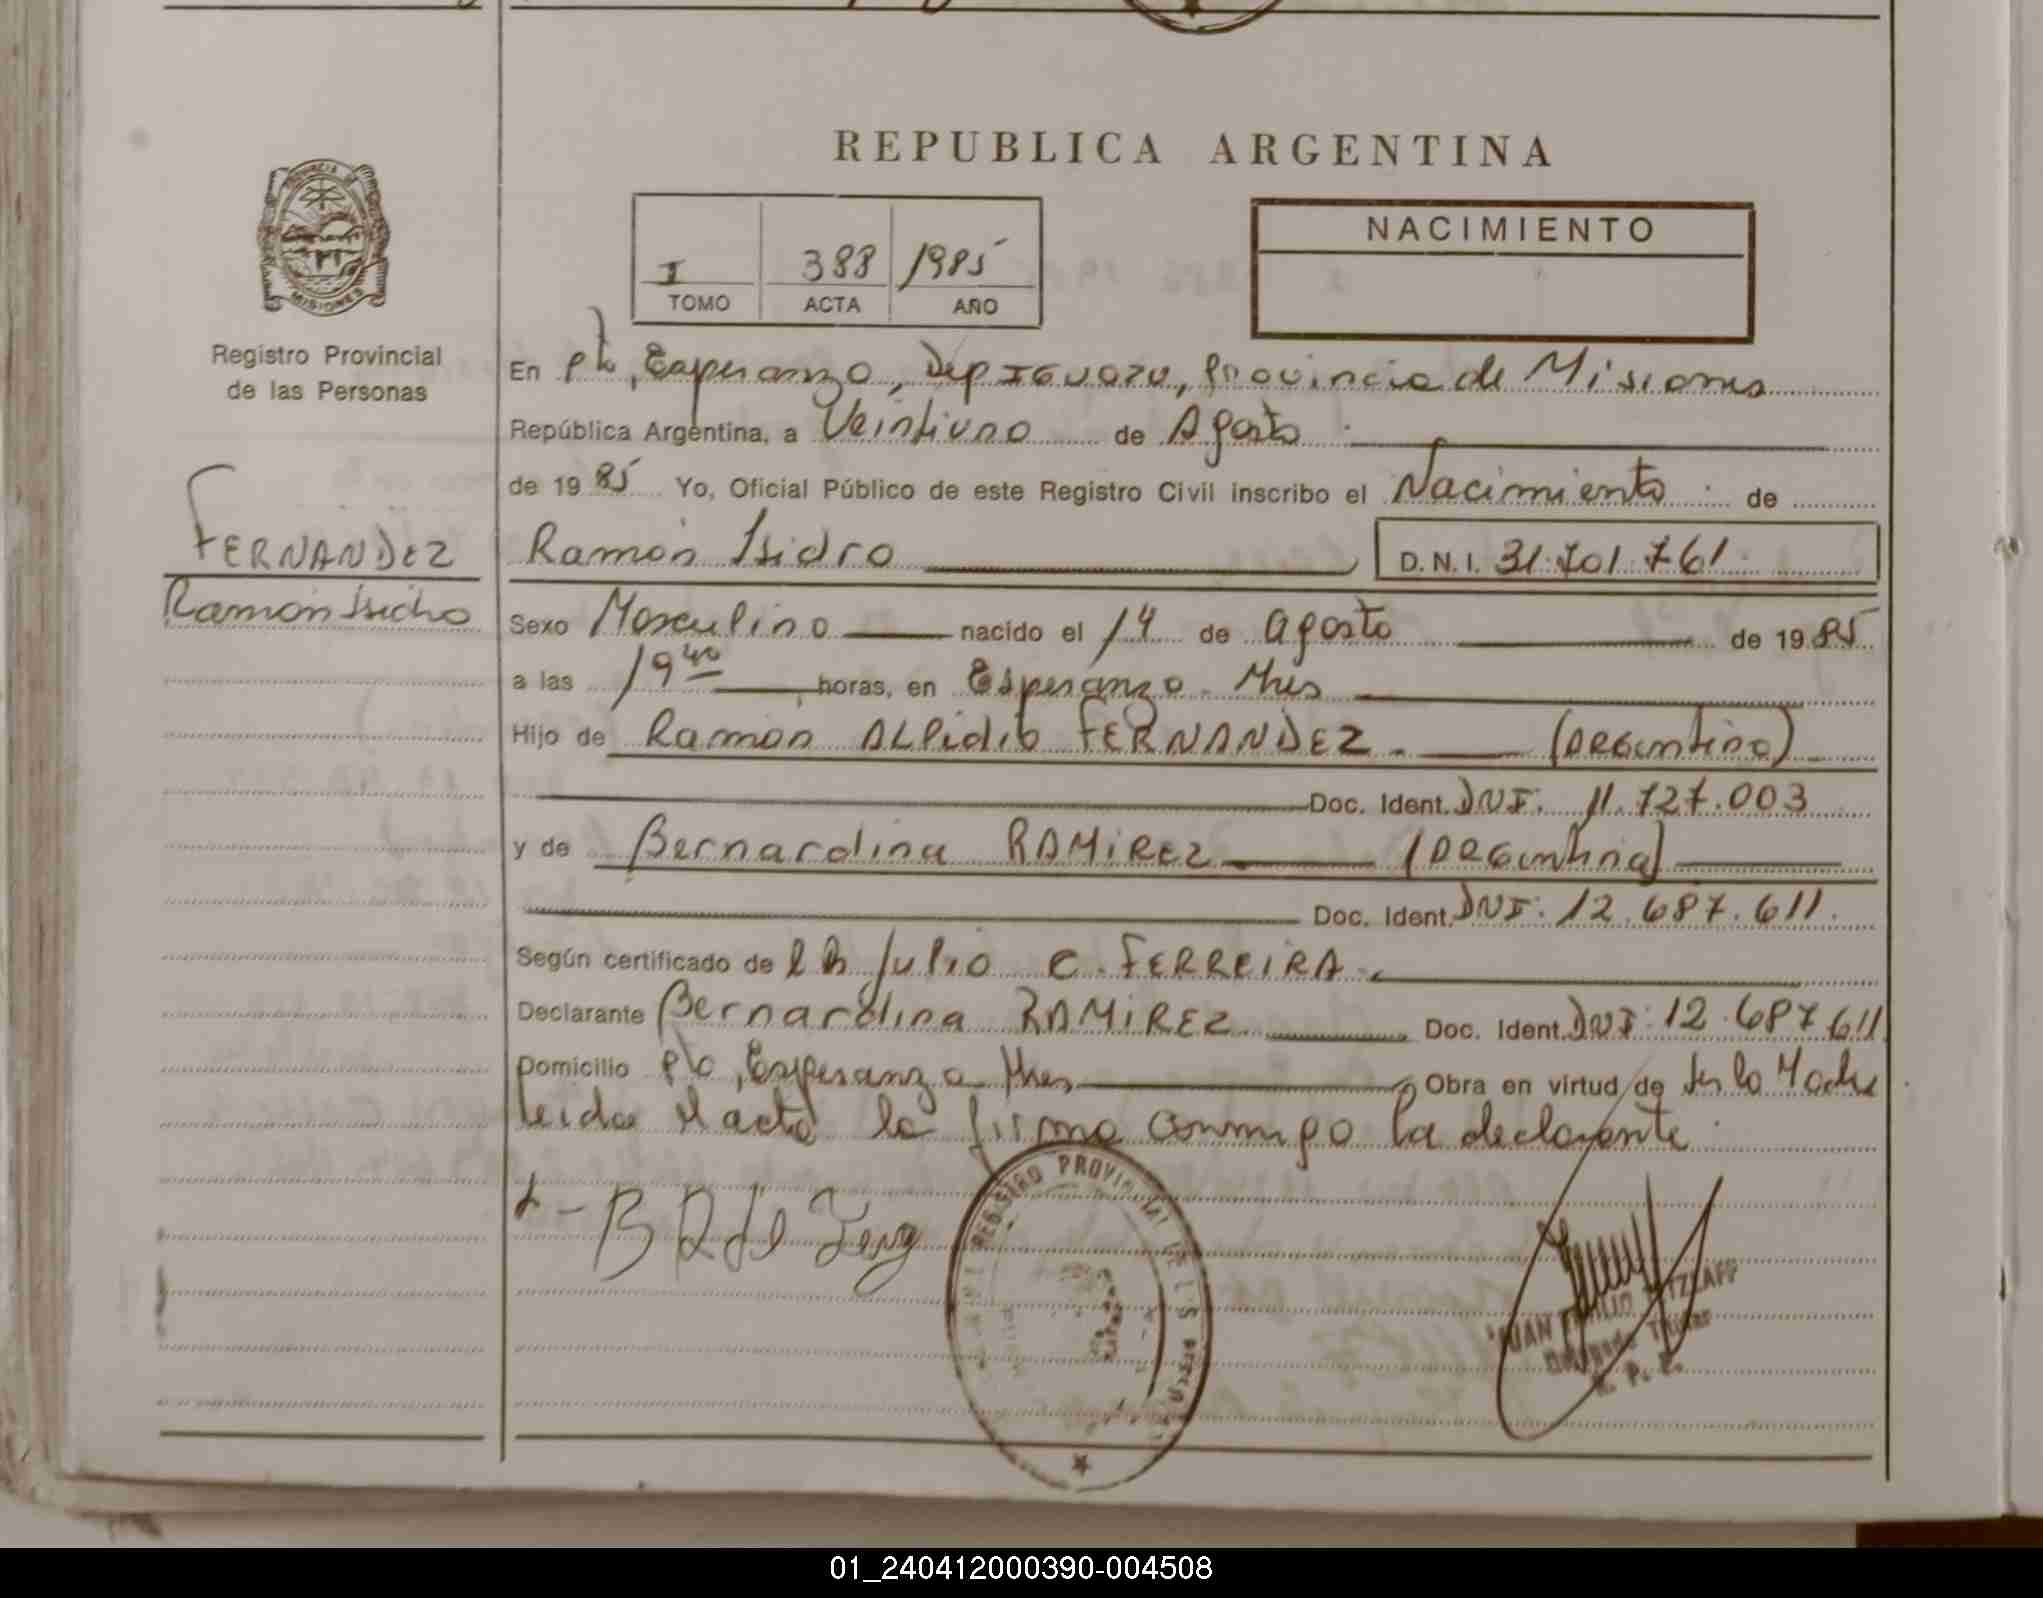 REPUBLICA ARGENTINA
PROVINCIA DE
MISIONES
Registro Provincial
de las Personas
FERNANDEZ
Ramón Isidro
I 388 1985
TOMO ACTA AÑO
NACIMIENTO
En Pto, Esperanza, Dep IGUAZU, Provincia de Misiones
República Argentina, a Veintiuno de Agosto
de 1985 Yo, Oficial Público de este Registro Civil inscribo el Nacimiento de
Ramón Isidro D.N.I. 31.701.761
Sexo Masculino nacido el 14 de agosto de 1985
a las 19 40 horas, en Esperanza - Mnes
Hijo de Ramón ALPidio FERNANDEZ. (ARGentino)
Doc. Ident. DNI. 11.727.003
y de Bernardina RAMIREZ (ARGentina)
Doc. Ident. DNI: 12.687.611.
Según certificado de Julio C. FERREIRA.
Declarante Bernardina RAMIREZ Doc. Ident. DNI: 12.687.611
Domicilio Pto, Esperanza Mnes Obra en virtud de ser la Madre
leida el acta la firma conmigo la declarante.
B R de
REGISTRO PROVINCIAL DE LAS PERSONAS
JUAN
Delegado Titular
R. P. P.
01_240412000390-004508